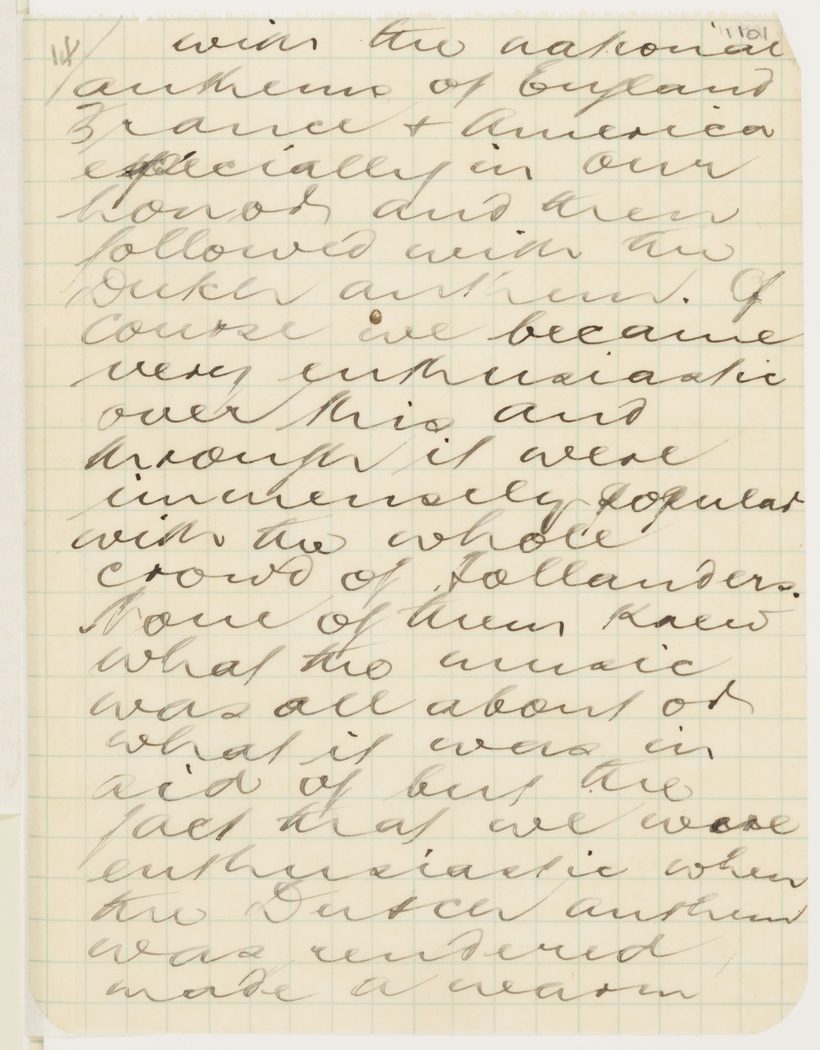 14/ with the national
anthems of England
France + America
especially in our
honor and then
followed with the
Dutch anthem. Of
course we became
very enthusiastic
over this and
through it were
immensely popular
with the whole
crowd of Hollanders.
None of them knew
what the music
was all about or
what it was in
aid of but the
fact that we were
enthusiastic when
the Dutch anthem
was rendered
made a warm